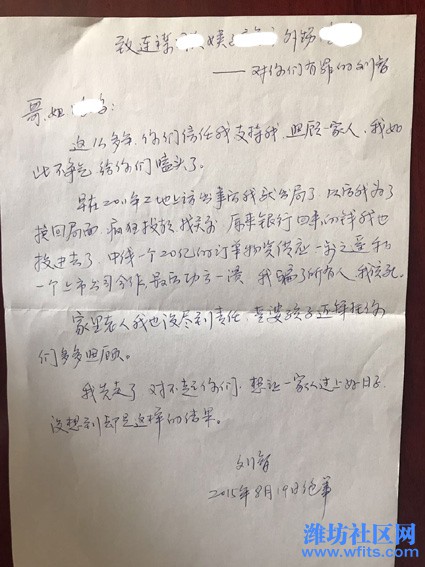 致连襟 姨 外甥
——对你们有罪的刘智
哥、姐:
这么多年,你们信任我支持我,照顾一家人,我如
此不争气,给你们磕头了。
早在2011年工地上访出事后我就出局了,以后我为了
挽回局面,疯狂投放,找 原来银行回来的钱我也
投进去了,中线一个20亿的订单物资供应一步之遥和
一个上市公司合作最后功亏一溃,我骗了所有人,我该死。
家里老人我也没尽到责任,老婆孩子还拜托你
们多多照顾。
我先走了,对不起你们,想让一家人过上好日子
没想到却是这样的结果。
刘智
2015年8月19日绝笔
潍坊社区网
www.wfits.com